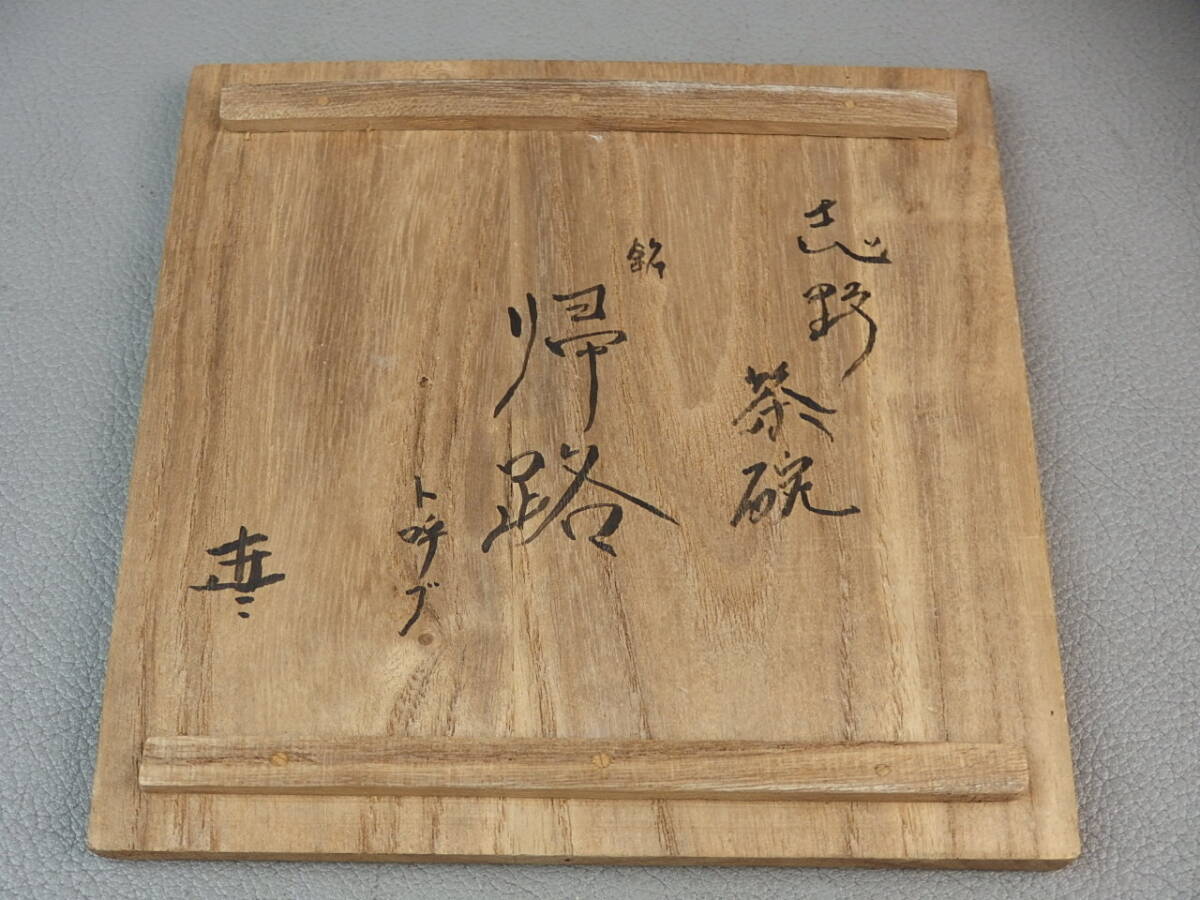 志野
茶碗
銘
帰路
ト呼ブ